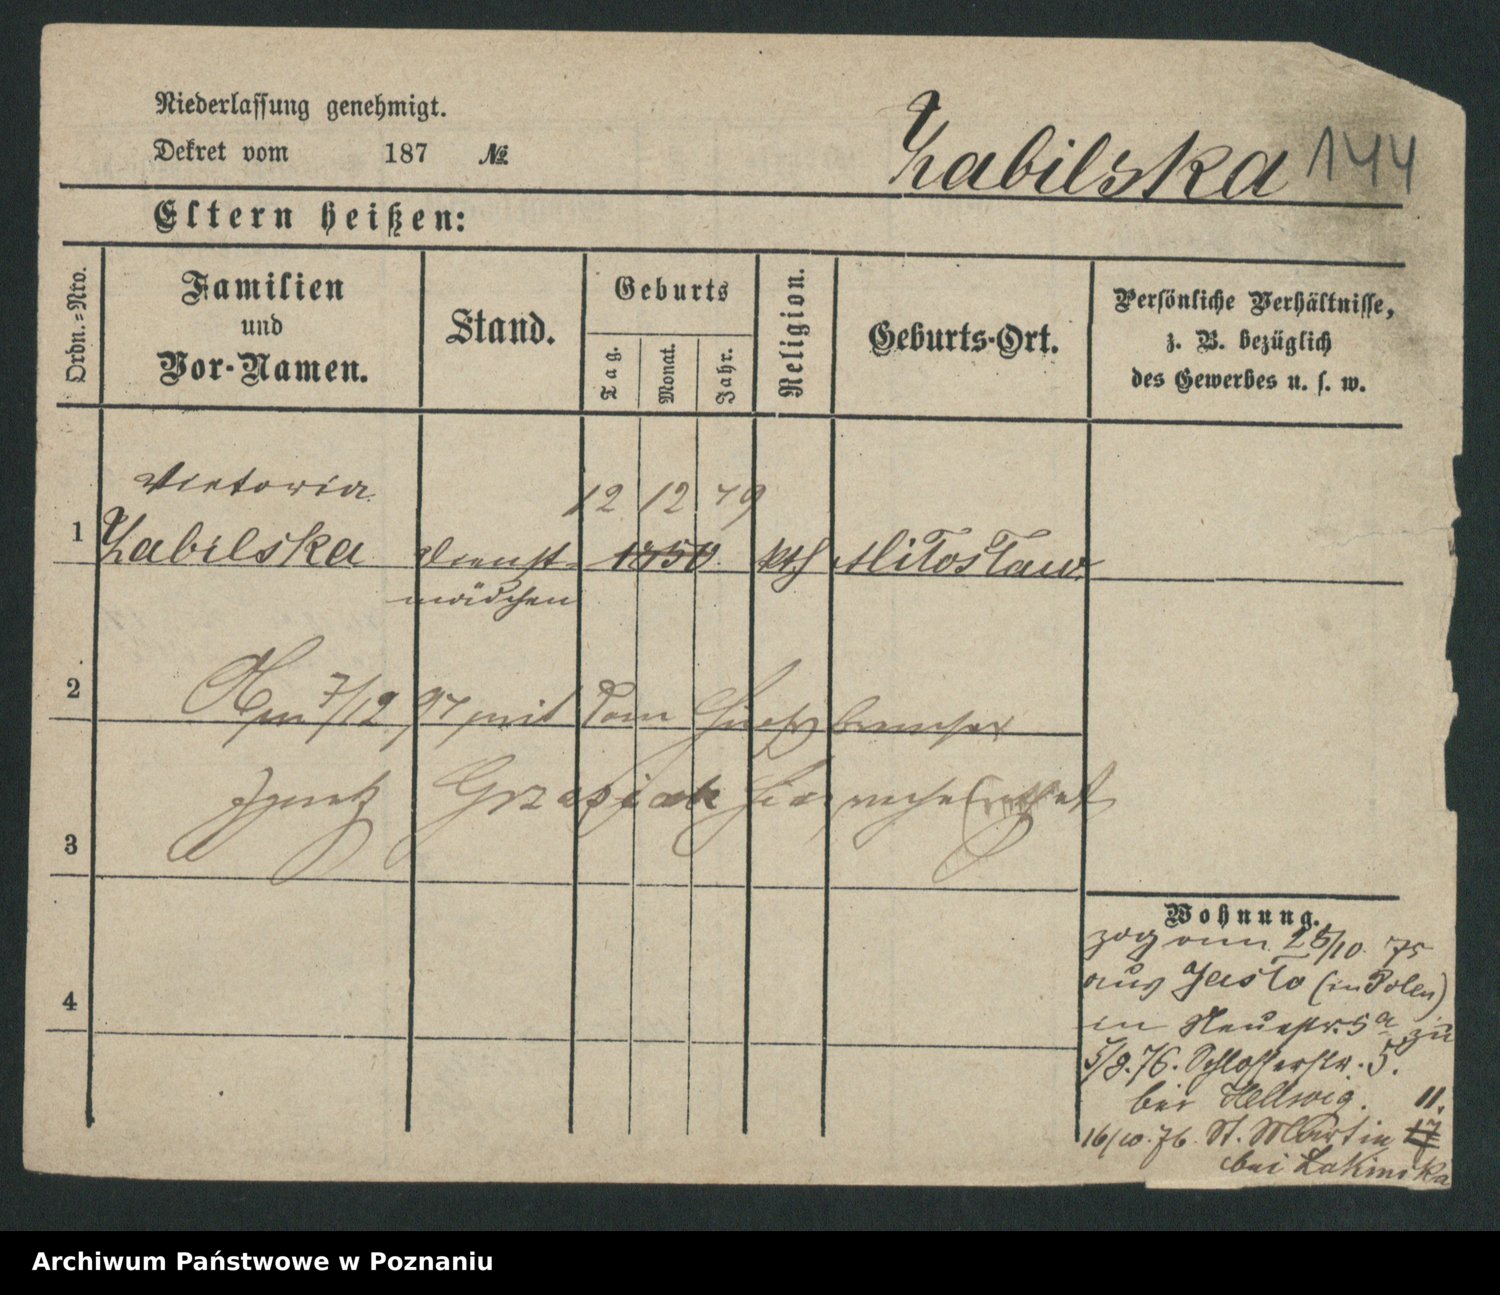 Niederlassung genehmigt.
Dekret vom 187 №
Żabilska 144
Eltern heißen:
Ordn.-Nro.
Familien
und
Vor-Namen.
Stand.
Geburts
Tag.
Monat.
Jahr.
Religion.
Geburts-Ort.
Persönliche Verhältnisse,
z. B. bezüglich
des Gewerbes u. s. w.
Victoria
12 12 49
1 Żabilska Dienst- 1850 kth Miłosław
mädchen
2 Am 7/12 97 mit dem
Ignatz Grzesiak
3
4
Wohnung.
zog am 25/10 75
aus Jasło (in Polen)
in Neuestr. 5a zu
5/8. 76. Schlosserstr. 5.
bei Hellwig. 11.
16/10. 76. St. Martin 17
bei Lakinska
Archiwum Państwowe w Poznaniu